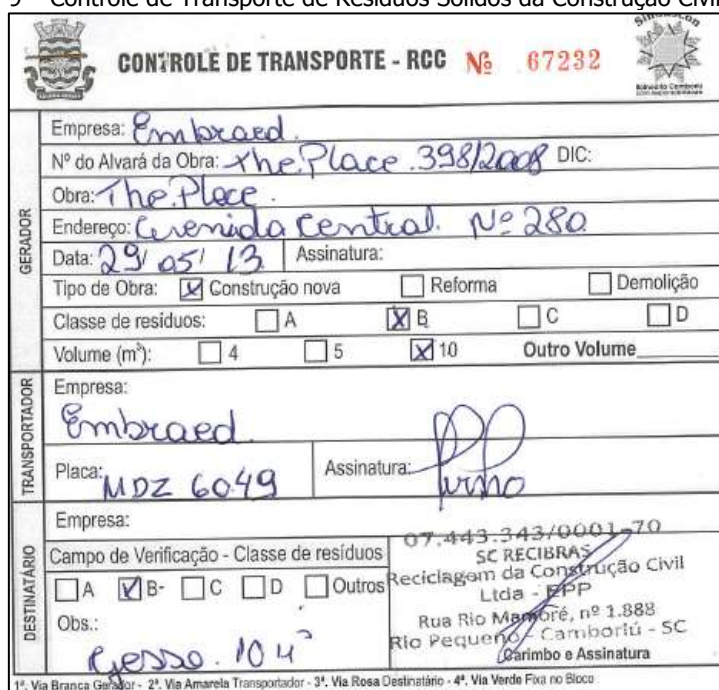 Controle de Transporte de Resíduos Sólidos da Construção Civil
CONTROLE DE TRANSPORTE - RCC Nº 67232
SINDUSCON
Balneário Camboriú
GERADOR
Empresa: Embraed
Nº do Alvará da Obra: The Place. 398/2008 DIC:
Obra: The Place.
Endereço: Avenida Central. Nº 280
Data: 29/05/13 Assinatura:
Tipo de Obra: X Construção nova Reforma Demolição
Classe de resíduos: A X B C D
Volume (m³): 4 5 X 10 Outro Volume
TRANSPORTADOR
Empresa:
Embraed
Placa: MDZ 6049 Assinatura:
DESTINATÁRIO
Empresa:
Campo de Verificação - Classe de resíduos
A B- C D Outros
Obs.:
gesso. 10
07.443.343/0001-70
SC RECIBRAS
Reciclagem da Construção Civil
Ltda - EPP
Rua Rio Mamoré, nº 1.888
Rio Pequeno - Camboriú - SC
Carimbo e Assinatura
1ª. Via Branca Gerador - 2ª. Via Amarela Transportador - 3ª. Via Rosa Destinatário - 4ª. Via Verde Fixa no Bloco